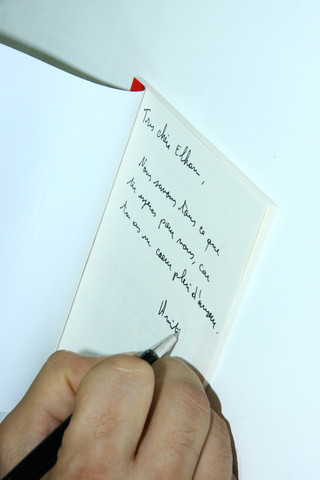 Très chère Elham,
Nous savons tous ce que
tu espères pour nous, car
tu as un coeur plein d'amour.